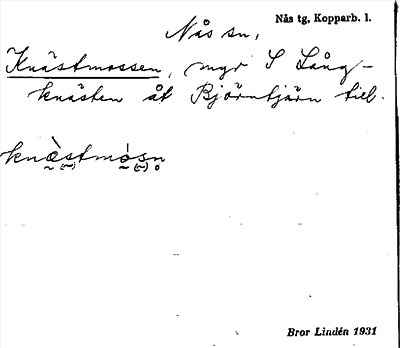 Nås tg, Kopparb. l.
Nås sn,
Knästmossen, mgr S Lång-
knästen åt Björntjärn till.
knæ̀stmósn
Bror Lindén 1931